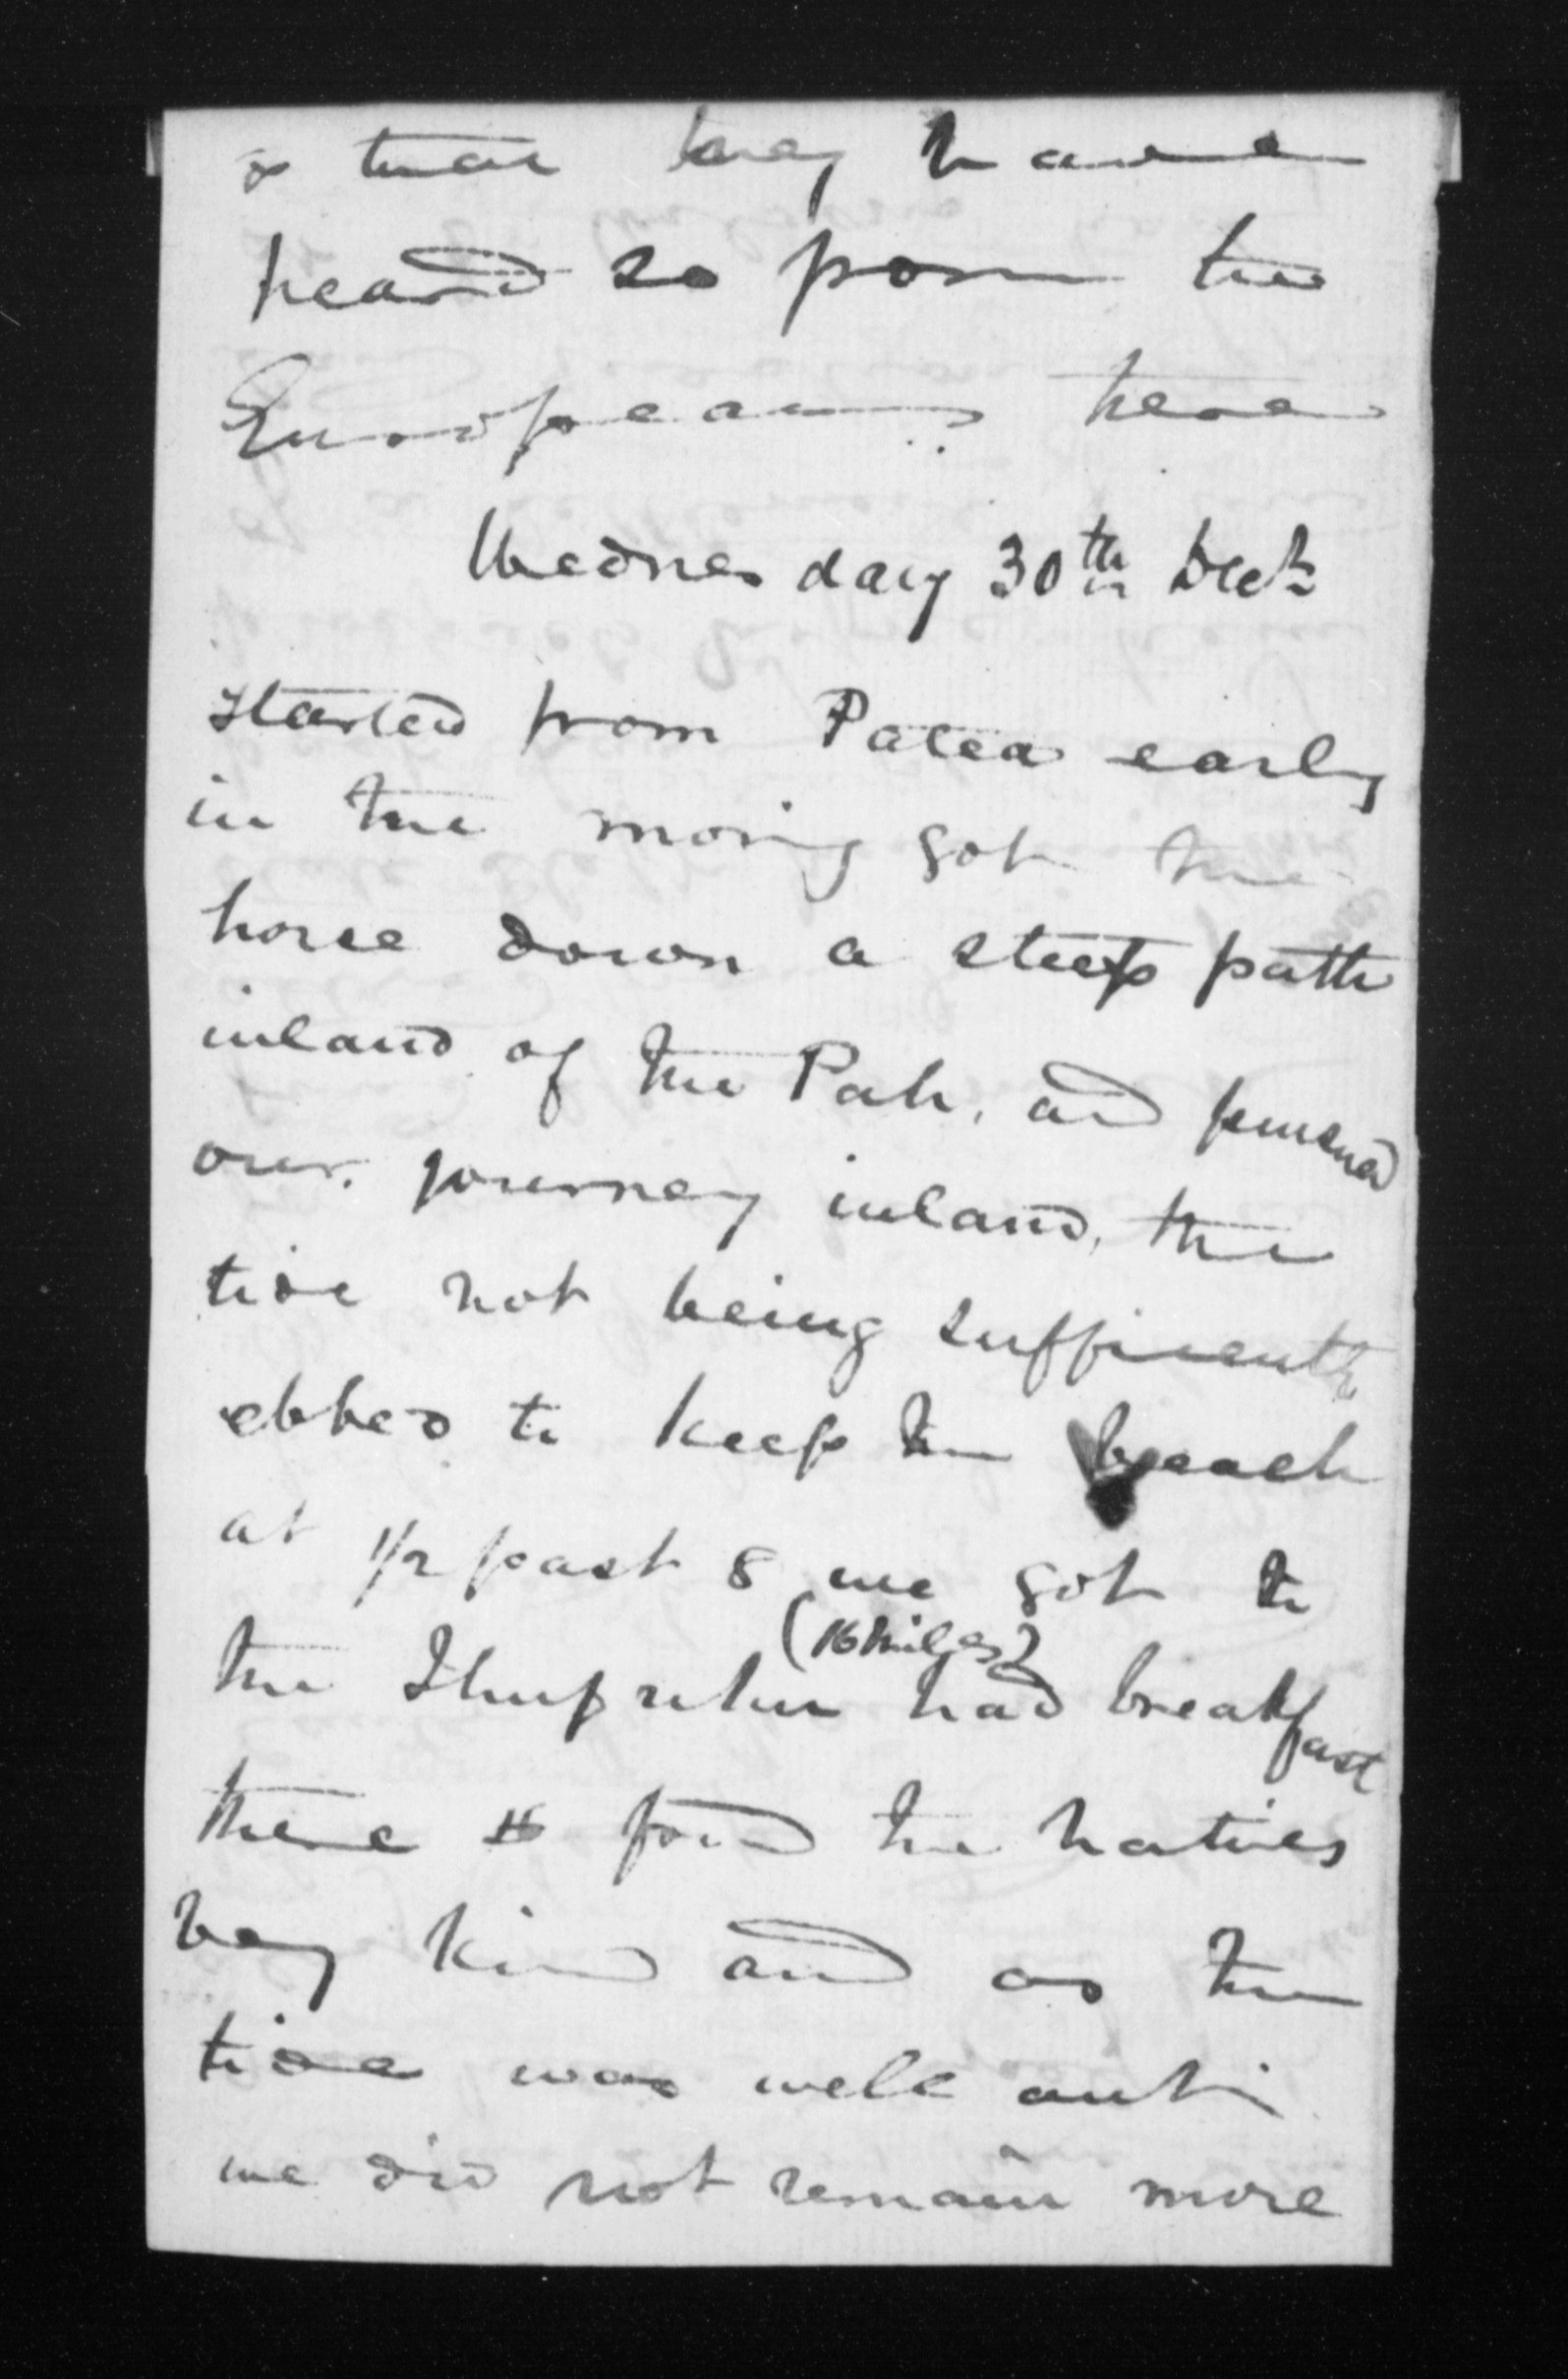 & that they have
heard so from the
Europeans here
Wednesday 30th Decr
Started from Patea early
in the morng got the
horse down a steep path
inland of the Pah, and pursued
our journey inland, the
tide not being sufficently
ebbed to keep the beach
at 1/2 past 8 we got to
(16 miles)
the had breakfast
there found the natives
very kind and as the
tide was well out
we did not remain more